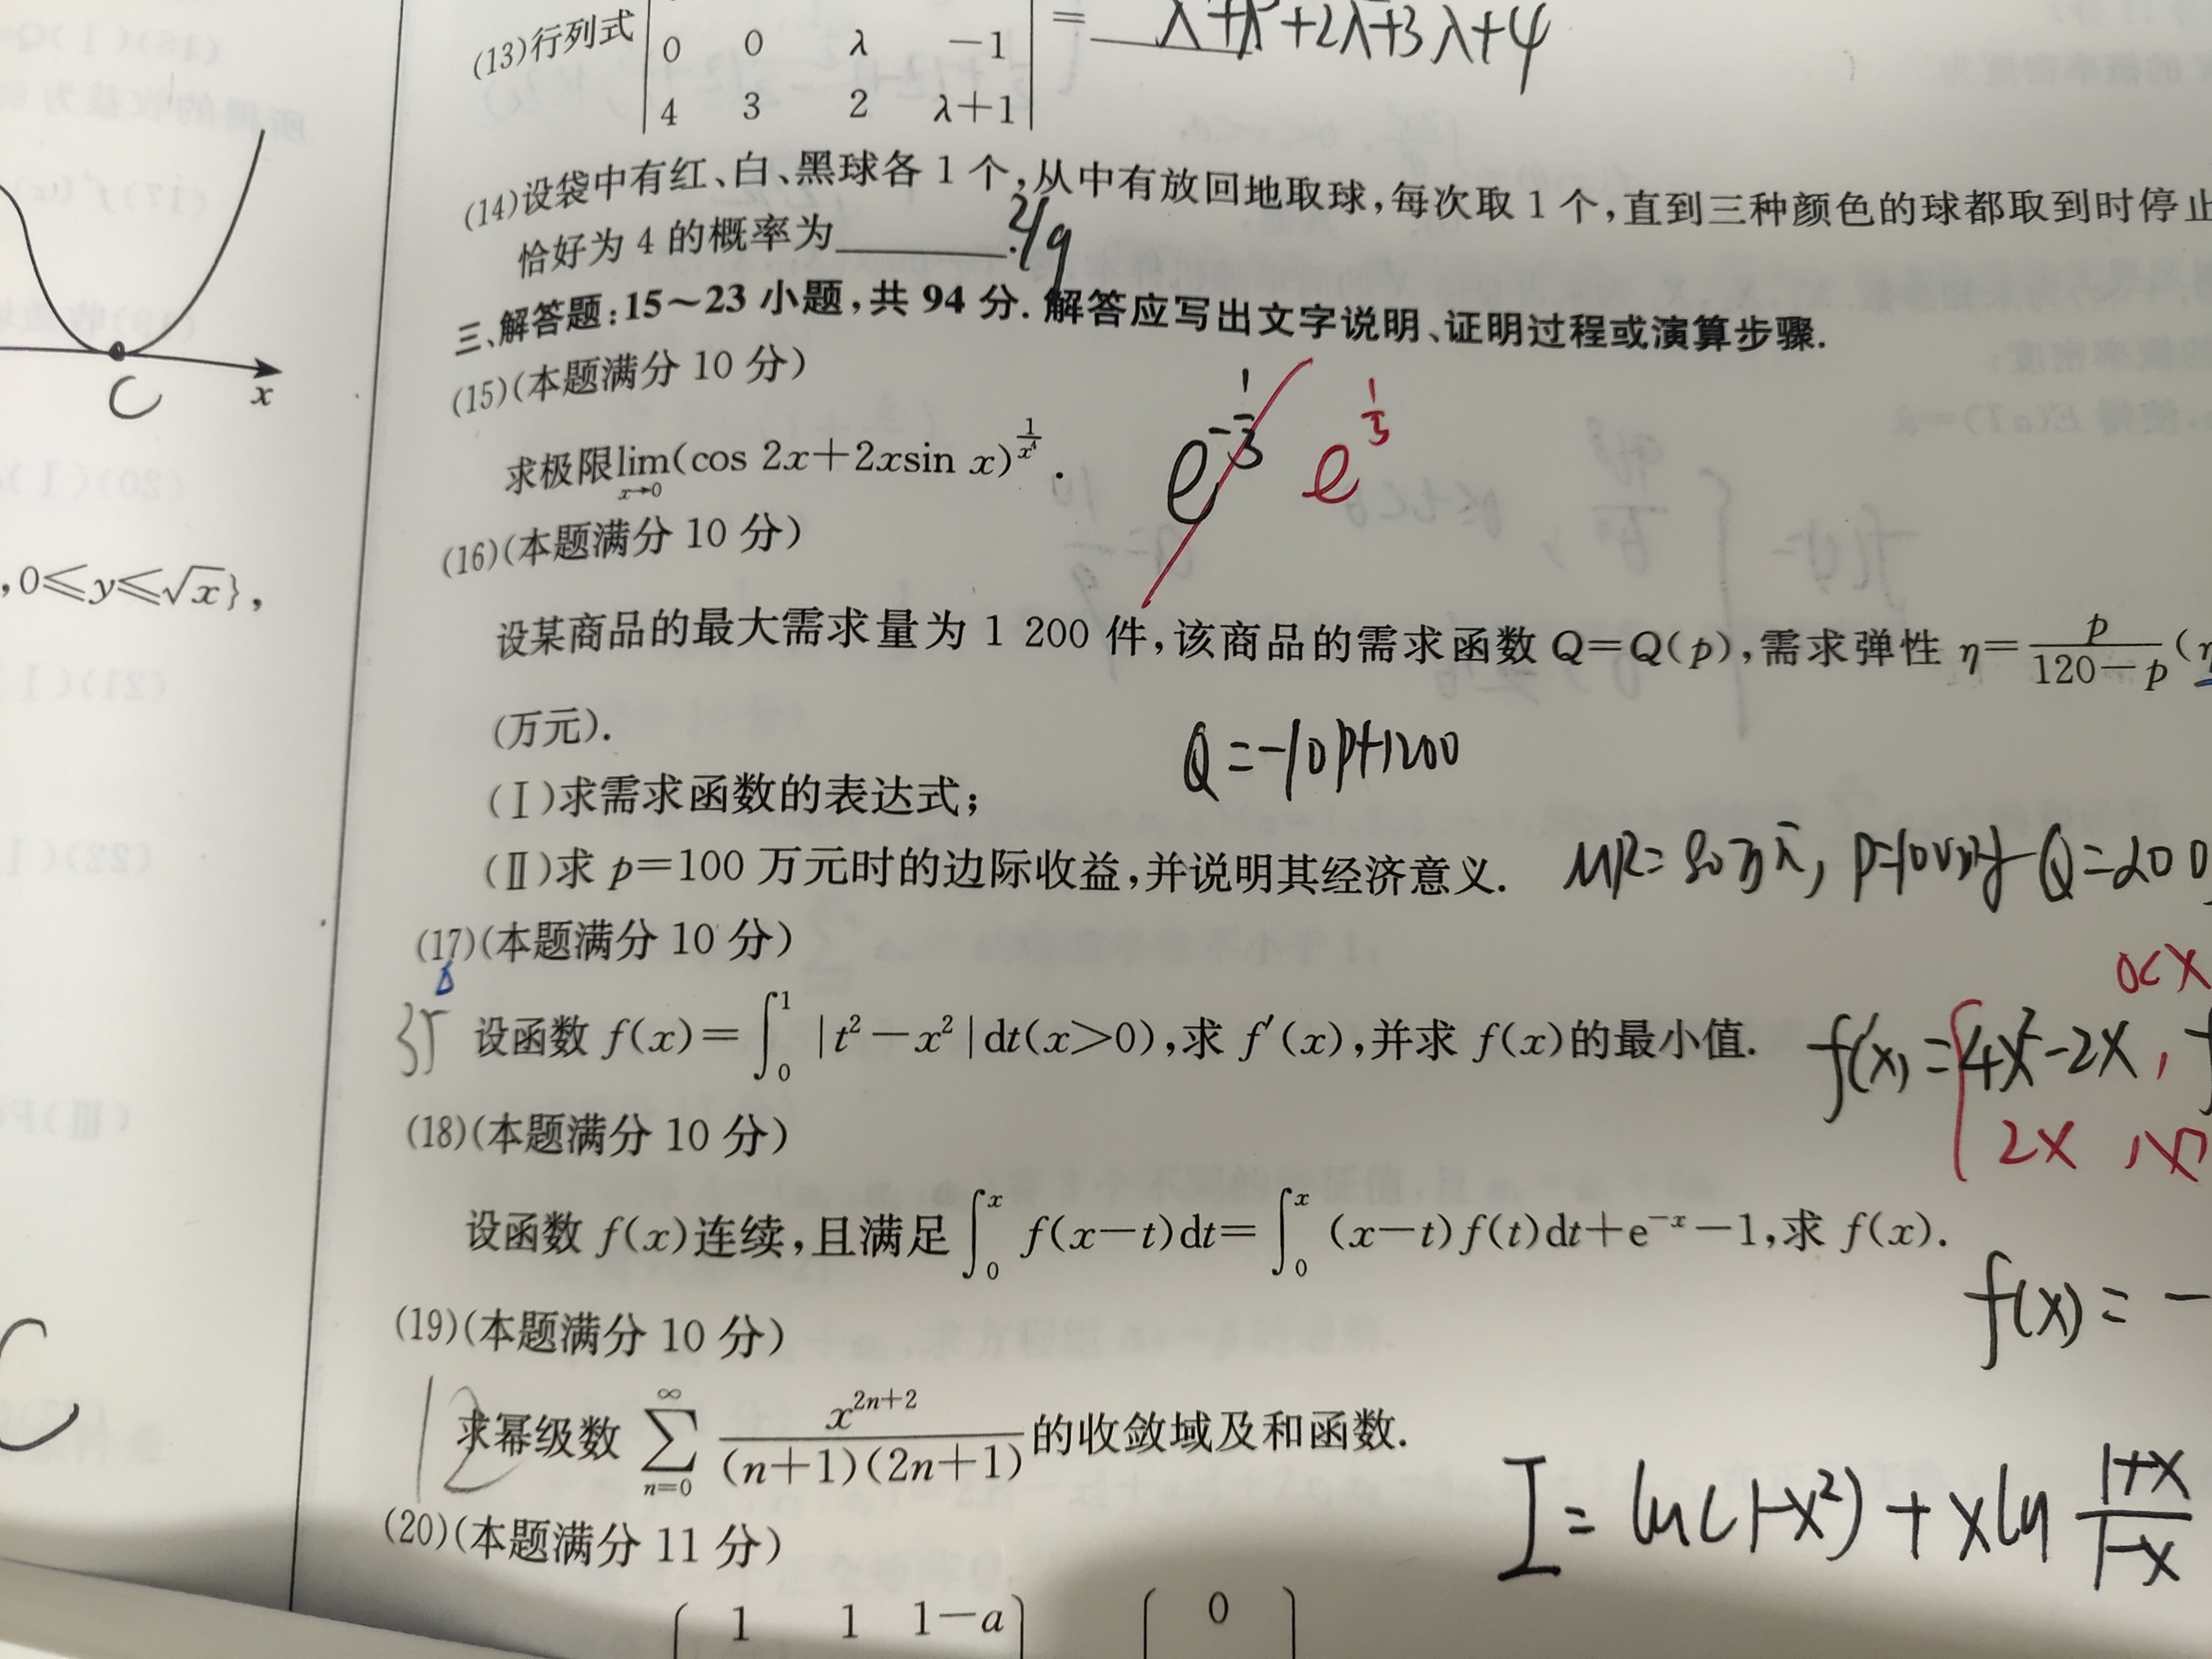 (13)行列式
0 0 λ −1
4 3 2 λ+1
= λ⁴+λ³+2λ²+3λ+4
(14)设袋中有红、白、黑球各 1 个,从中有放回地取球,每次取 1 个,直到三种颜色的球都取到时停止
恰好为 4 的概率为______. 2/9
三、解答题:15~23 小题,共 94 分. 解答应写出文字说明、证明过程或演算步骤.
(15)(本题满分 10 分)
求极限lim(cos 2x+2xsin x)^{1/x⁴}.
x→0
e^{-1/3} e^{1/3}
(16)(本题满分 10 分)
设某商品的最大需求量为 1 200 件,该商品的需求函数 Q=Q(p),需求弹性 η=p/(120−p)(η
(万元).
Q=-10p+1200
(Ⅰ)求需求函数的表达式;
(Ⅱ)求 p=100 万元时的边际收益,并说明其经济意义.
(17)(本题满分 10 分)
35 设函数 f(x)=∫₀¹|t²−x²|dt(x>0),求 f′(x),并求 f(x)的最小值.
0<x
f'(x)={4x²-2x,
2x ,x>
(18)(本题满分 10 分)
设函数 f(x)连续,且满足∫₀ˣ f(x−t)dt=∫₀ˣ (x−t)f(t)dt+e⁻ˣ−1,求 f(x).
f(x)=-
(19)(本题满分 10 分)
12 求幂级数 ∑_{n=0}^{∞} x^{2n+2}/((n+1)(2n+1))的收敛域及和函数.
I=ln(1-x²)+xln (1+x)/(1-x)
(20)(本题满分 11 分)
1 1 1−a
0
C
x
,0≤y≤√x},
C